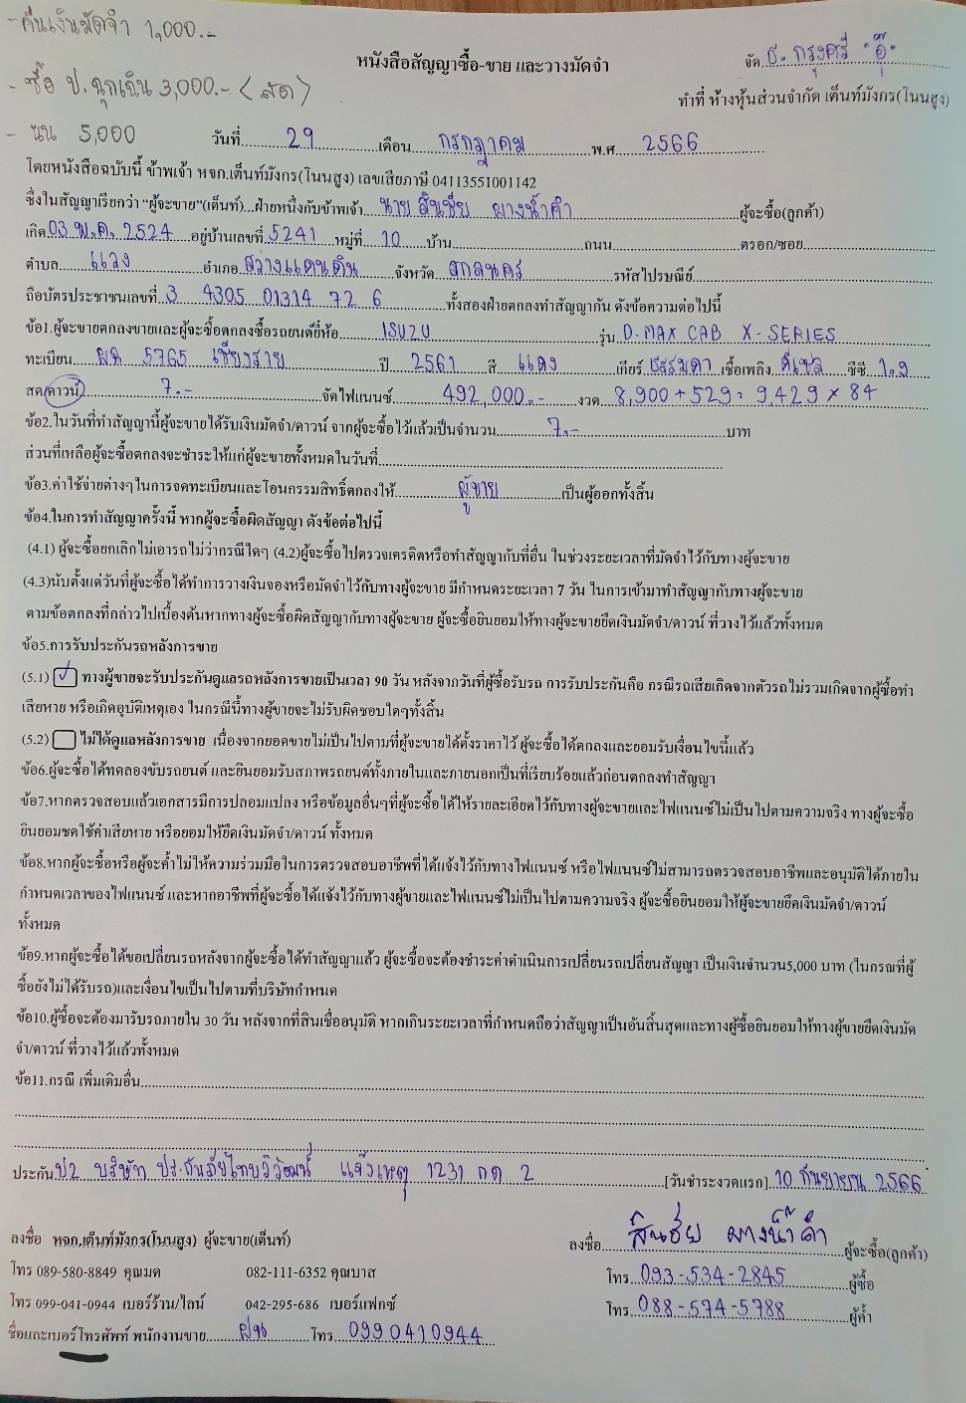 - คืนเงินมัดจำ 1,000.-
หนังสือสัญญาซื้อ-ขาย และวางมัดจำ
จัด ธ. กรุงศรี "อุ๊"
- ซื้อ ป. ฉุกเฉิน 3,000.- < สด >
ทำที่ ห้างหุ้นส่วนจำกัด เต็นท์มังกร(โนนสูง)
- 5,000
วันที่ 29 เดือน กรกฎาคม พ.ศ 2566
โดยหนังสือฉบับนี้ ข้าพเจ้า หจก.เต็นท์มังกร(โนนสูง) เลขเสียภาษี 04113551001142
ซึ่งในสัญญาเรียกว่า "ผู้จะขาย"(เต็นท์)...ฝ่ายหนึ่งกับข้าพเจ้า นาย สินชัย ผางน้ำคำ ผู้จะซื้อ(ลูกค้า)
เกิด 03 พ.ค. 2524 อยู่บ้านเลขที่ 5241 หมู่ที่ 10 บ้าน ถนน ตรอก/ซอย
ตำบล แวง อำเภอ สว่างแดนดิน จังหวัด สกลนคร รหัสไปรษณีย์
ถือบัตรประชาชนเลขที่ 3 4305 01314 72 6 ทั้งสองฝ่ายตกลงทำสัญญากัน ดังข้อความต่อไปนี้
ข้อ1.ผู้จะขายตกลงขายและผู้จะซื้อตกลงซื้อรถยนต์ยี่ห้อ ISUZU รุ่น D-MAX CAB X-SERIES
ทะเบียน ผด 5765 เชียงราย ปี 2561 สี แดง เกียร์ ธรรมดา เชื้อเพลิง ดีเซล ซีซี 1.9
สด/ดาวน์ 7.- จัดไฟแนนซ์ 492,000.- งวด 8,900 + 529 = 9,429 × 84
ข้อ2.ในวันที่ทำสัญญานี้ผู้จะขายได้รับเงินมัดจำ/ดาวน์ จากผู้จะซื้อไว้แล้วเป็นจำนวน 7.- บาท
ส่วนที่เหลือผู้จะซื้อตกลงจะชำระให้แก่ผู้จะขายทั้งหมดในวันที่
ข้อ3.ค่าใช้จ่ายต่างๆในการจดทะเบียนและโอนกรรมสิทธิ์ตกลงให้ ผู้ขาย เป็นผู้ออกทั้งสิ้น
ข้อ4.ในการทำสัญญาครั้งนี้ หากผู้จะซื้อผิดสัญญา ดังข้อต่อไปนี้
(4.1) ผู้จะซื้อยกเลิกไม่เอารถไม่ว่ากรณีใดๆ (4.2)ผู้จะซื้อไปตรวจเครดิตหรือทำสัญญากับที่อื่น ในช่วงระยะเวลาที่มัดจำไว้กับทางผู้จะขาย
(4.3)นับตั้งแต่วันที่ผู้จะซื้อได้ทำการวางเงินจองหรือมัดจำไว้กับทางผู้จะขาย มีกำหนดระยะเวลา 7 วัน ในการเข้ามาทำสัญญากับทางผู้จะขาย
ตามข้อตกลงที่กล่าวไปเบื้องต้นหากทางผู้จะซื้อผิดสัญญากับทางผู้จะขาย ผู้จะซื้อยินยอมให้ทางผู้จะขายยึดเงินมัดจำ/ดาวน์ ที่วางไว้แล้วทั้งหมด
ข้อ5.การรับประกันรถหลังการขาย
(5.1) ✓ ทางผู้ขายจะรับประกันดูแลรถหลังการขายเป็นเวลา 90 วัน หลังจากวันที่ผู้ซื้อรับรถ การรับประกันคือ กรณีรถเสียเกิดจากตัวรถ ไม่รวมเกิดจากผู้ซื้อทำ
เสียหาย หรือเกิดอุบัติเหตุเอง ในกรณีนี้ทางผู้ขายจะไม่รับผิดชอบใดๆทั้งสิ้น
(5.2) ไม่ได้ดูแลหลังการขาย เนื่องจากยอดขายไม่เป็นไปตามที่ผู้จะขายได้ตั้งราคาไว้ ผู้จะซื้อได้ตกลงและยอมรับเงื่อนไขนี้แล้ว
ข้อ6.ผู้จะซื้อได้ทดลองขับรถยนต์ และยินยอมรับสภาพรถยนต์ทั้งภายในและภายนอกเป็นที่เรียบร้อยแล้วก่อนตกลงทำสัญญา
ข้อ7.หากตรวจสอบแล้วเอกสารมีการปลอมแปลง หรือข้อมูลอื่นๆที่ผู้จะซื้อได้ให้รายละเอียดไว้กับทางผู้จะขายและไฟแนนซ์ไม่เป็นไปตามความจริง ทางผู้จะซื้อ
ยินยอมชดใช้ค่าเสียหาย หรือยอมให้ยึดเงินมัดจำ/ดาวน์ ทั้งหมด
ข้อ8.หากผู้จะซื้อหรือผู้จะค้ำไม่ให้ความร่วมมือในการตรวจสอบอาชีพที่ได้แจ้งไว้กับทางไฟแนนซ์ หรือไฟแนนซ์ไม่สามารถตรวจสอบอาชีพและอนุมัติได้ภายใน
กำหนดเวลาของไฟแนนซ์ และหากอาชีพที่ผู้จะซื้อได้แจ้งไว้กับทางผู้ขายและไฟแนนซ์ไม่เป็นไปตามความจริง ผู้จะซื้อยินยอมให้ผู้จะขายยึดเงินมัดจำ/ดาวน์
ทั้งหมด
ข้อ9.หากผู้จะซื้อได้ขอเปลี่ยนรถหลังจากผู้จะซื้อได้ทำสัญญาแล้ว ผู้จะซื้อจะต้องชำระค่าดำเนินการเปลี่ยนรถเปลี่ยนสัญญา เป็นเงินจำนวน5,000 บาท (ในกรณีที่ผู้
ซื้อยังไม่ได้รับรถ)และเงื่อนไขเป็นไปตามที่บริษัทกำหนด
ข้อ10.ผู้ซื้อจะต้องมารับรถภายใน 30 วัน หลังจากที่สินเชื่ออนุมัติ หากเกินระยะเวลาที่กำหนดถือว่าสัญญาเป็นอันสิ้นสุดและทางผู้ซื้อยินยอมให้ทางผู้ขายยึดเงินมัด
จำ/ดาวน์ ที่วางไว้แล้วทั้งหมด
ข้อ11.กรณี เพิ่มเติมอื่น
ประกัน ป2 บริษัท ประกันภัยไทยวิวัฒน์ แจ้งเหตุ 1231 กด 2 [วันชำระงวดแรก] 10 กันยายน 2566
ลงชื่อ หจก.เต็นท์มังกร(โนนสูง) ผู้จะขาย(เต็นท์)
ลงชื่อ สินชัย ผางน้ำคำ ผู้จะซื้อ(ลูกค้า)
โทร 089-580-8849 คุณมด 082-111-6352 คุณบาส
โทร 093-534-2845 ผู้ซื้อ
โทร 099-041-0944 เบอร์ร้าน/ไลน์ 042-295-686 เบอร์แฟกซ์
โทร 088-574-5788 ผู้ค้ำ
ชื่อและเบอร์โทรศัพท์ พนักงานขาย โทร 0990410944